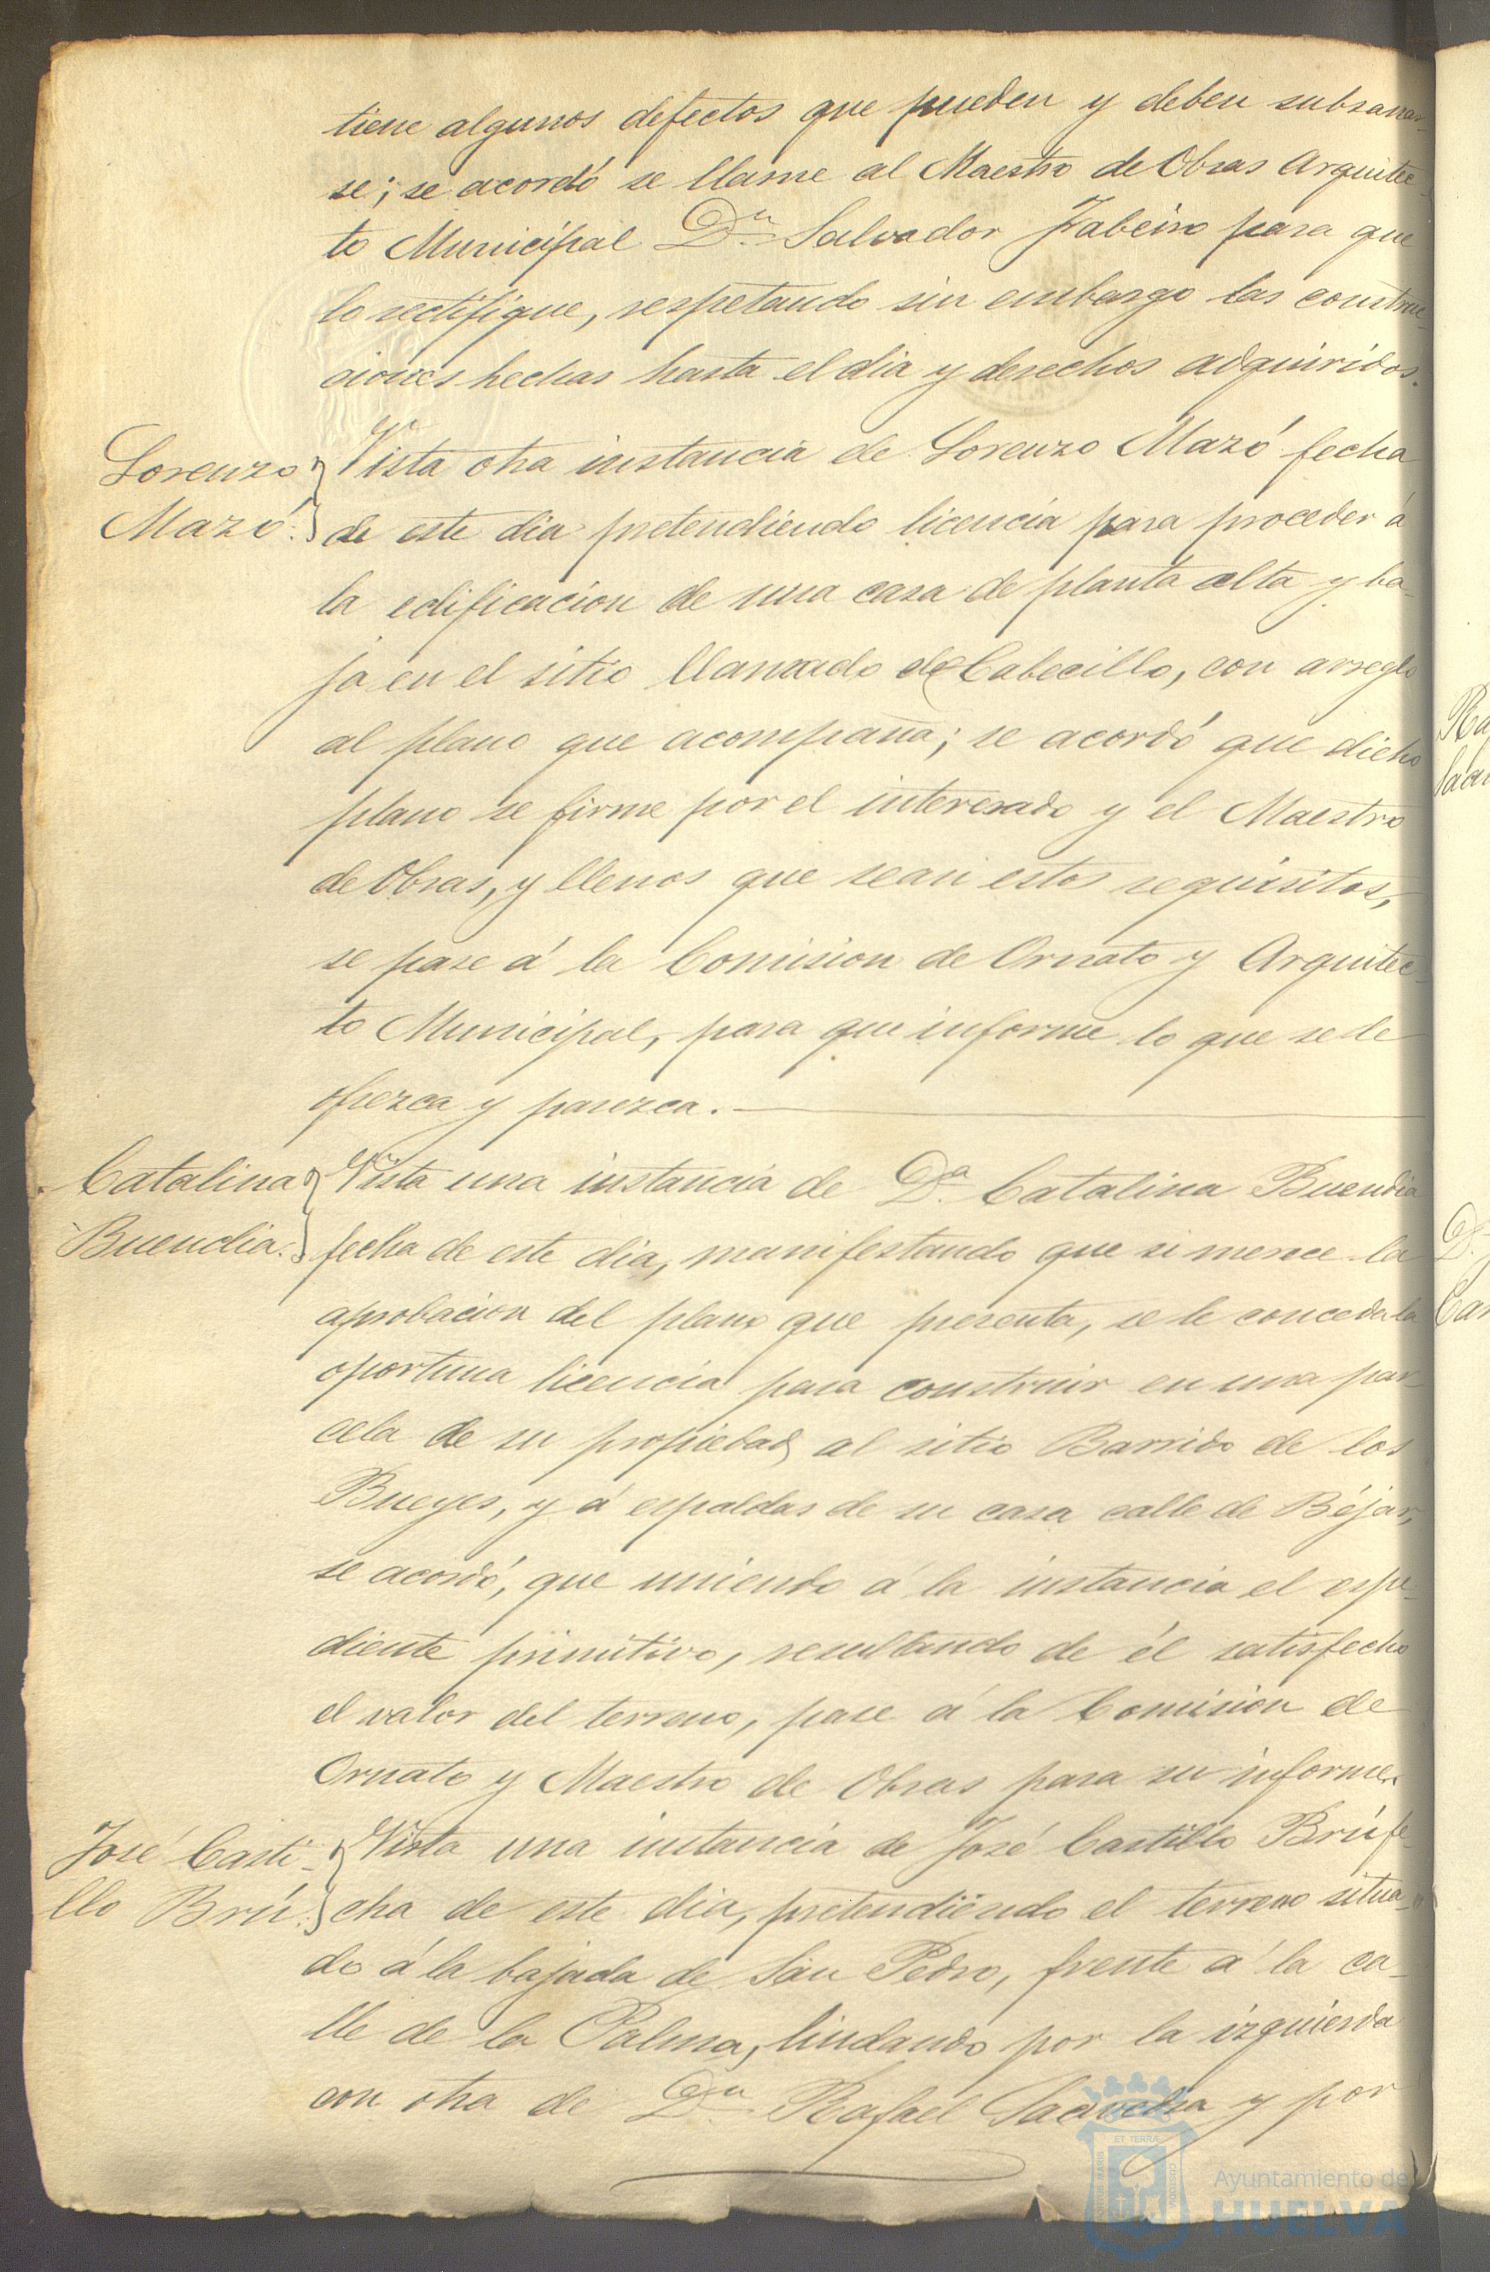 tiene algunos defectos que pueden y deben subsanar-
se; se acordó se llame al Maestro de Obras Arquitec-
to Municipal Dn. Salvador Zabeiro para que
lo rectifique, respetando sin embargo las construc-
ciones hechas hasta el dia y derechos adquiridos.
Lorenzo
Mazó.
Vista otra instancia de Lorenzo Mazó fecha
de este dia pretendiendo licencia para proceder á
la edificacion de una casa de planta alta y ba-
ja en el sitio llamado del Cabecillo, con arreglo
al plano que acompaña; se acordó que dicho
plano se firme por el interesado y el Maestro
de Obras, y llenos que sean estos requisitos,
se pase á la Comision de Ornato y Arquitec-
to Municipal, para que informe lo que se le
ofrezca y parezca.
Catalina
Buendia.
Vista una instancia de Da. Catalina Buendia
fecha de este dia, manifestando que si merece la
aprobacion del plano que presenta, se le conceda la
oportuna licencia para construir en una par-
cela de su propiedad al sitio Barrido de los
Bueyes, y á espaldas de su casa calle de Béjar,
se acordó, que uniendo á la instancia el espe-
diente primitivo, resultando de él satisfecho
el valor del terreno, pase á la Comision de
Ornato y Maestro de Obras para su informe.
José Casti-
llo Brú.
Vista una instancia de José Castillo Brú fe-
cha de este dia, pretendiendo el terreno situa-
do á la bajada de San Pedro, frente á la ca-
lle de la Palma, lindando por la izquierda
con otra de Dn. Rafael y por
Ayuntamiento de
HUELVA